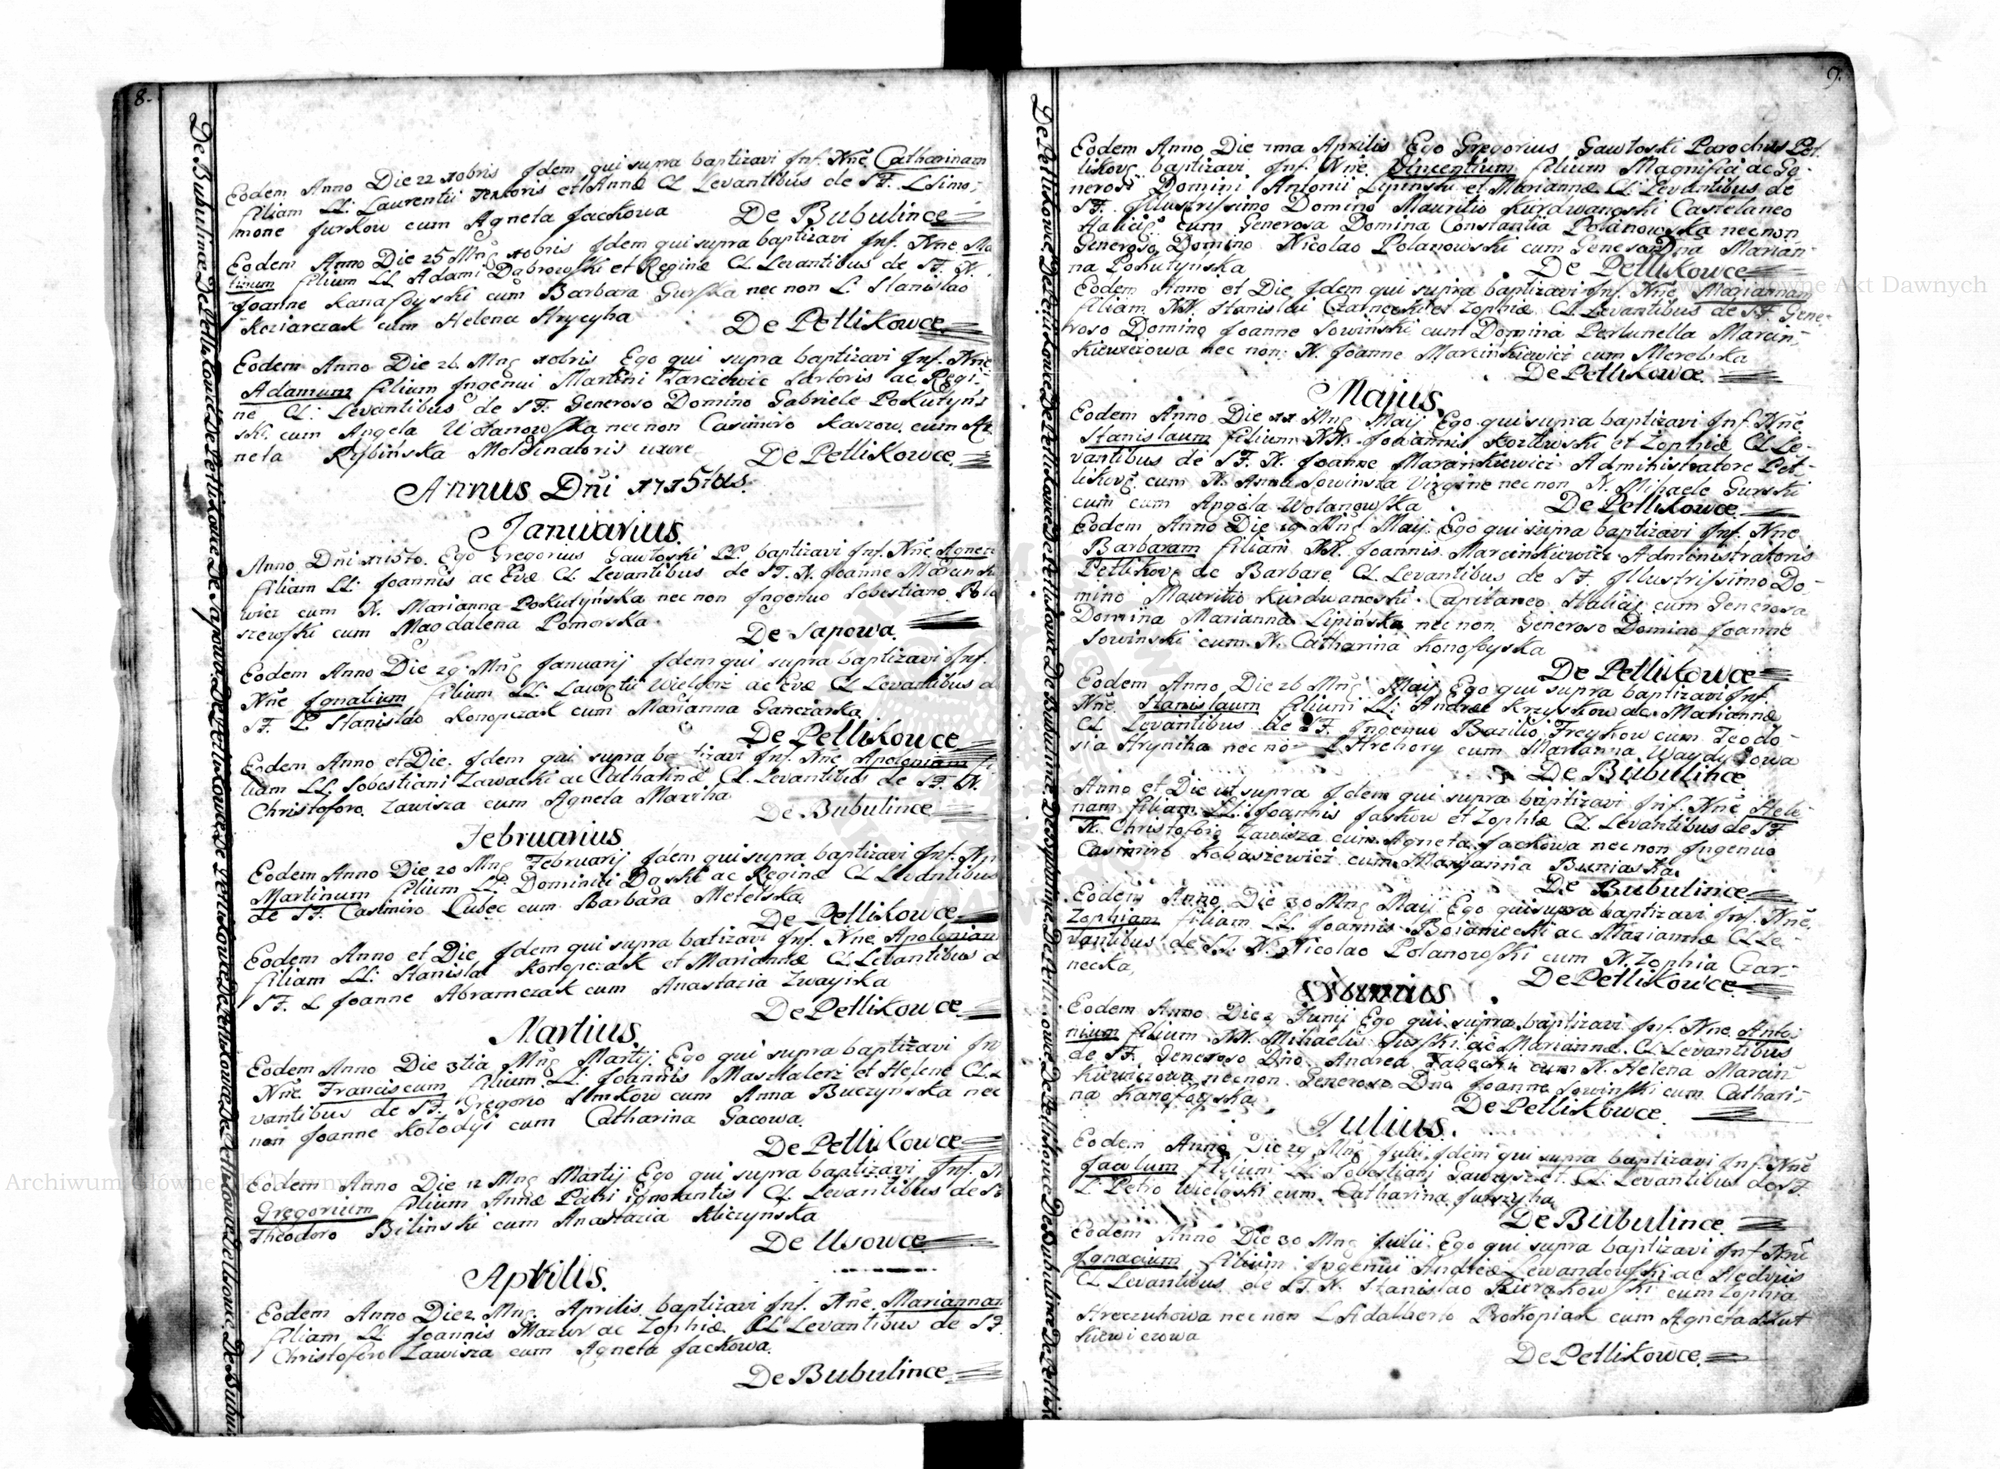 8.
Eodem Anno Die 22 10bris Idem qui supra baptizavi Inf. Nñe Catharinam
filiam LL: Laurentii Textoris et Annæ CL Levantibus de ST. L Simo:
mone Jurkow cum Agneta Jackowa De Bubulince
Eodem Anno Die 25 Mñs 10bris Idem qui supra baptizavi Inf. Nñe Ma
tinum filium LL Adami Dąbrowski et Reginæ CL Levantibus de ST. N.
Joanne Kanafoyski cum Barbara Gurska nec non L. Stanislao
Koziarczak cum Helena Hrycyha De Petlikowce
Eodem Anno Die 26 Mñs 10bris Ego qui supra baptizavi Inf. Nñe
Adamum filium Ingenui Martini Tarciewic Sartoris ac Regi-
næ CL: Levantibus de ST. Generoso Domino Gabriele Pokutyns
ski cum Angela Wolanowska nec non Casimiro Kaszow cum Ag
neta Rybińska Moldinatoris uxore De Petlikowce
Annus Dñi 1715tus.
Januarius.
Anno Dñi 1715to. Ego Gregorius Gawłoski PP. baptizavi Inf. Nñe Agnet
filiam LL: Joannis ac Evæ CL Levantibus de ST. N. Joanne Marcinki
wicz cum N. Marianna Pokutyńska nec non Ingenuo Sebestiano Pola
szewski cum Magdalena Pomorska De Sapowa.
Eodem Anno Die 29 Mñs Januarij Idem qui supra baptizavi Inf.
Nñe Ignatium filium LL: Laurētii Wielgosz ac Evæ CL Levantibus d
ST. L. Stanislao Konopczak cum Marianna Ganczarka
De Petlikowce
Eodem Anno et Die. Idem qui supra baptizavi Inf. Nñe Apoloniam fi
liam LL. Sobestiani Zawacki ac Catharinæ CL Levantibus de ST. N.
Christoforo Zawisza cum Agneta Maxiha
De Bubulince
Februarius
Eodem Anno Die 20 Mñs Februarij Idem qui supra baptizavi Inf. Nñ
Martinum filium LL Dominici Daski ac Reginæ CL Levantibus
de ST. Casimiro Cubec cum Barbara Metelska
De Petlikowce
Eodem Anno et Die Idem qui supra batizavi Inf. Nñe Apoloniam
filiam LL: Stanislai Konopczak et Mariannæ CL Levantibus d
ST. L Joanne Abramczak cum Anastazia Zwayska
De Petlikowce
Martius.
Eodem Anno Die 3tia Mñs Martij Ego qui supra baptizavi Inf
Nñe Franciscum filium LL: Joannis Masztalerz et Helenæ CL L
vantibus de ST. Gregorio Simkow cum Anna Buczynska nec
non Joanne Kolodyi cum Catharina Gacowa.
De Petlikowce
Eodem Anno Die 12 Mñs Martij Ego qui supra baptizavi Inf. N
Gregorium filium Annæ Patri ignorantis CL Levantibus de ST
Theodoro Bilinski cum Anastazia Kliczynska
De Usowce
Aprilis.
Eodem Anno Die 2 Mñs. Aprilis baptizavi Inf. Nñe. Mariannam
filiam LL Joannis Mazur ac Zophiæ CL Levantibus de ST.
Christoforo Zawisza cum Agneta Jackowa.
De Bubulince
9.
Eodem Anno Die 1ma Aprilis Ego Gregorius Gawłoski Parochus Pet
likovs baptizavi Inf. Nñe. Vincentium filium Magnifici ac Ge-
nerosi Domini Antonii Lipinski et Mariannæ CL: Levantibus de
ST. Illustrissimo Domino Mauritio Kurdwanoski Castelaneo
Halics: cum Generosa Domina Constantia Polanowska nec non
Generoso Domino Nicolao Polanowski cum Generosa Dña Marian-
na Pokutyńska De Petlikowce
Eodem Anno et Die Idem qui supra baptizavi Inf. Nñe Mariannam
filiam NN. Stanislai Czarnecki et Zophiæ CL Levantibus de ST. Gene-
roso Domino Joanne Sowinski cum Domina Pertunella Marcin-
kiewiczowa nec non N. Joanne Marcinkiewicz cum Merebska
De Petlikowce
Majus.
Eodem Anno Die 11 Mñs Maij Ego qui supra baptizavi Inf. Nñe
Stanislaum filium NN. Joannis Kozłowski et Zophiæ CL Le-
vantibus de ST. N. Joanne Marcinkiewicz Administratore Pet-
likovs cum N. Anna Sowinska Virgine nec non N. Mihaele Gurski
cum cum Angela Wolanowska De Petlikowce
Eodem Anno Die 19 Mñs Maij Ego qui supra baptizavi Inf. Nñe
Barbaram filiam NN. Joannis Marcinkiewicz Administratoris
Petlikovs de Barbare CL Levantibus de ST. Illustrissimo Do-
mino Mauritio Kurdwanoski Capitaneo Halics cum Generosa
Domina Marianna Lipinska nec non Generoso Domino Joanne
Sowinski cum N. Catharina Konofoyska
De Petlikowce
Eodem Anno Die 26 Mñs Maij Ego qui supra baptizavi Inf
Nñe Stanislaum filium LL: Andreæ Krzyskow ac Mariannæ
CL Levantibus de ST. Ingenuo Bazilio Freykow cum Teodo-
sia Hryniha nec non L Hrehory cum Marianna Waydyzowa
De Bubulince
Anno et Die ut supra Idem qui supra baptizavi Inf. Nñe Hele-
nam filiam LL: Joannis Jaskow et Zophiæ CL Levantibus de ST
N. Christoforo Zawisza cum Agneta Jackowa nec non Ingenuo
Casimiro Kobaszewicz cum Maryanna Buniaska
De Bubulince
Eodem Anno Die 30 Mñs Maij Ego qui supra baptizavi Inf. Nñe
Zophiam filiam LL Joannis Boianiecki ac Mariannæ CL Le-
vantibus de ST. N. Nicolao Polanowski cum N. Zophia Czar-
necka De Petlikowce
Junius
Eodem Anno Die 2 Junij Ego qui supra baptizavi Inf. Nñe. Anto-
nium filium NN. Mihaelis Gurski ac Mariannæ CL Levantibus
de ST. Generoso Dño Andrea Fabecki cum N. Helena Marcin-
kiewiczowa nec non Generoso Dño Joanne Sowinski cum Cathari-
na Kanafoyska De Petlikowce.
Julius.
Eodem Anno Die 29 Mñs Julii Idem qui supra baptizavi Inf. Nñe
Jacobum filium LL Sobestiani Gawrysz et CL: Levantibus de ST.
L: Petro Wielgoski cum Catharina Jurszyha
De Bubulince
Eodem Anno Die 30 Mñs Julii Ego qui supra baptizavi Inf Nñe
Ignacium filium Ingenui Andreæ Lewandowski ac Hedvigis
CL Levantibus de ST. N. Stanislao Bierzkowski cum Zophia
Hreczuhowa nec non L Adalberto Prokopiak cum Agneta Kut
kiewiczowa
De Petlikowce.
Archiwum Główne Akt Dawnych